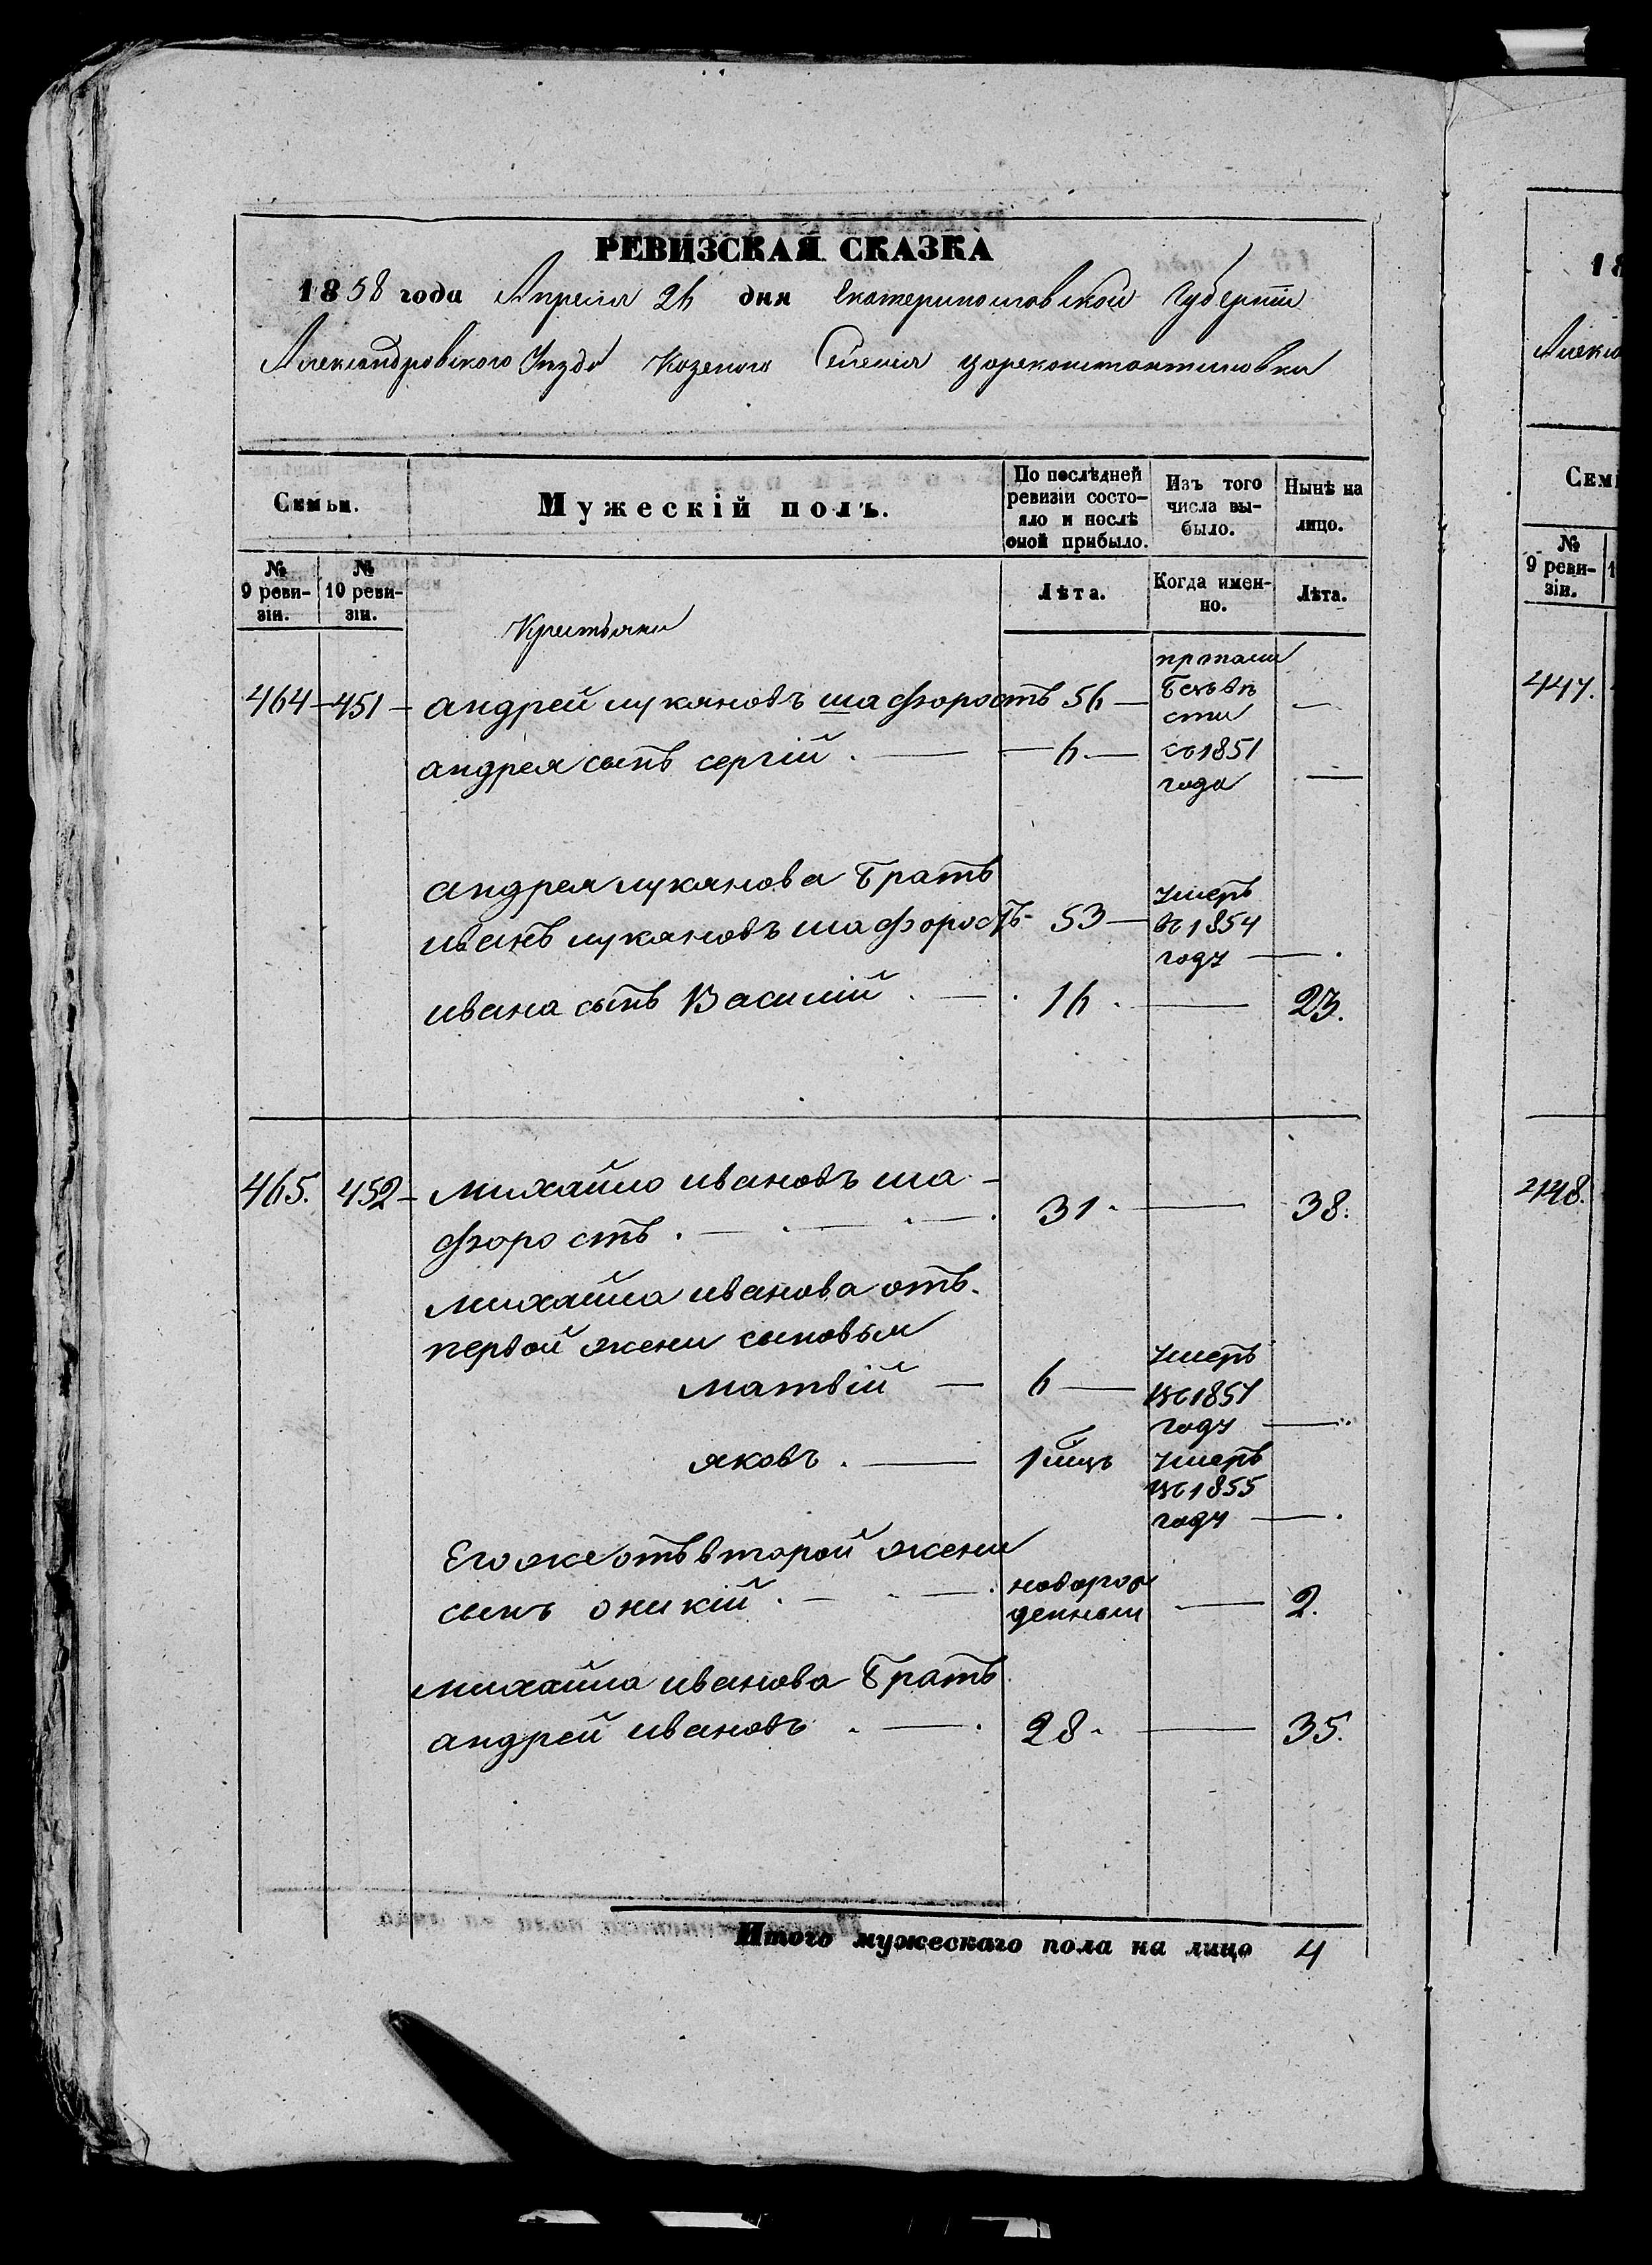 РЕВИЗСКАЯ СКАЗКА
1858 года Апреля 26 дня Екатеринославской Губернии
Александровского Уезда Казеного Селения Цареконстантиновки
Семьи. Мужескій полъ. По послѣдней ревизіи состояло и послѣ оной прибыло. Изъ того числа выбыло. Нынѣ на лицо.
№ 9 ревизіи. № 10 ревизіи. Лѣта. Когда именно. Лѣта.
Крестьяни
464 – 451 – андрей лукяновъ шафоростъ 56 – пропали безъ вѣсти —
андрея сынъ сергій . — 6. — съ 1851 года —
андрея лукянова братъ
иванъ лукяновъ шафоростъ - 53 — умеръ въ 1854 году — .
ивана сынъ Василій . — . 16 . — 23.
465. 452 – михайло ивановъ ша-
форостъ . — . — . — . 31 . — 38.
михайла иванова отъ
первой жени сыновья
матвій — 6 — умеръ въ 1851 году —
яковъ . — 1 мцъ умеръ въ 1855 году — .
Его же отъ второй жени
сынъ оникій . — . — . новорожденный — 2.
михайла иванова братъ
андрей ивановъ . — . 28 . — 35.
Итого мужескаго пола на лицо 4
18
Алекса
Семь
№ 9 ревизіи. 1
447.
448.